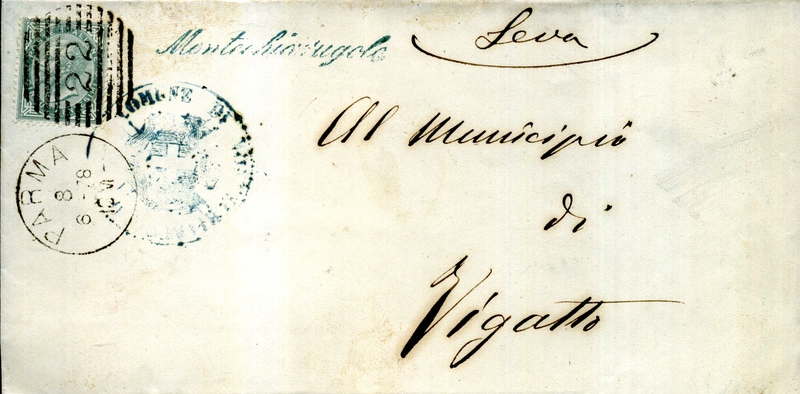 Montechiarugolo
Leva
22
COMUNE DI
Al Municipio
di
Vigatto
PARMA
8
6-78